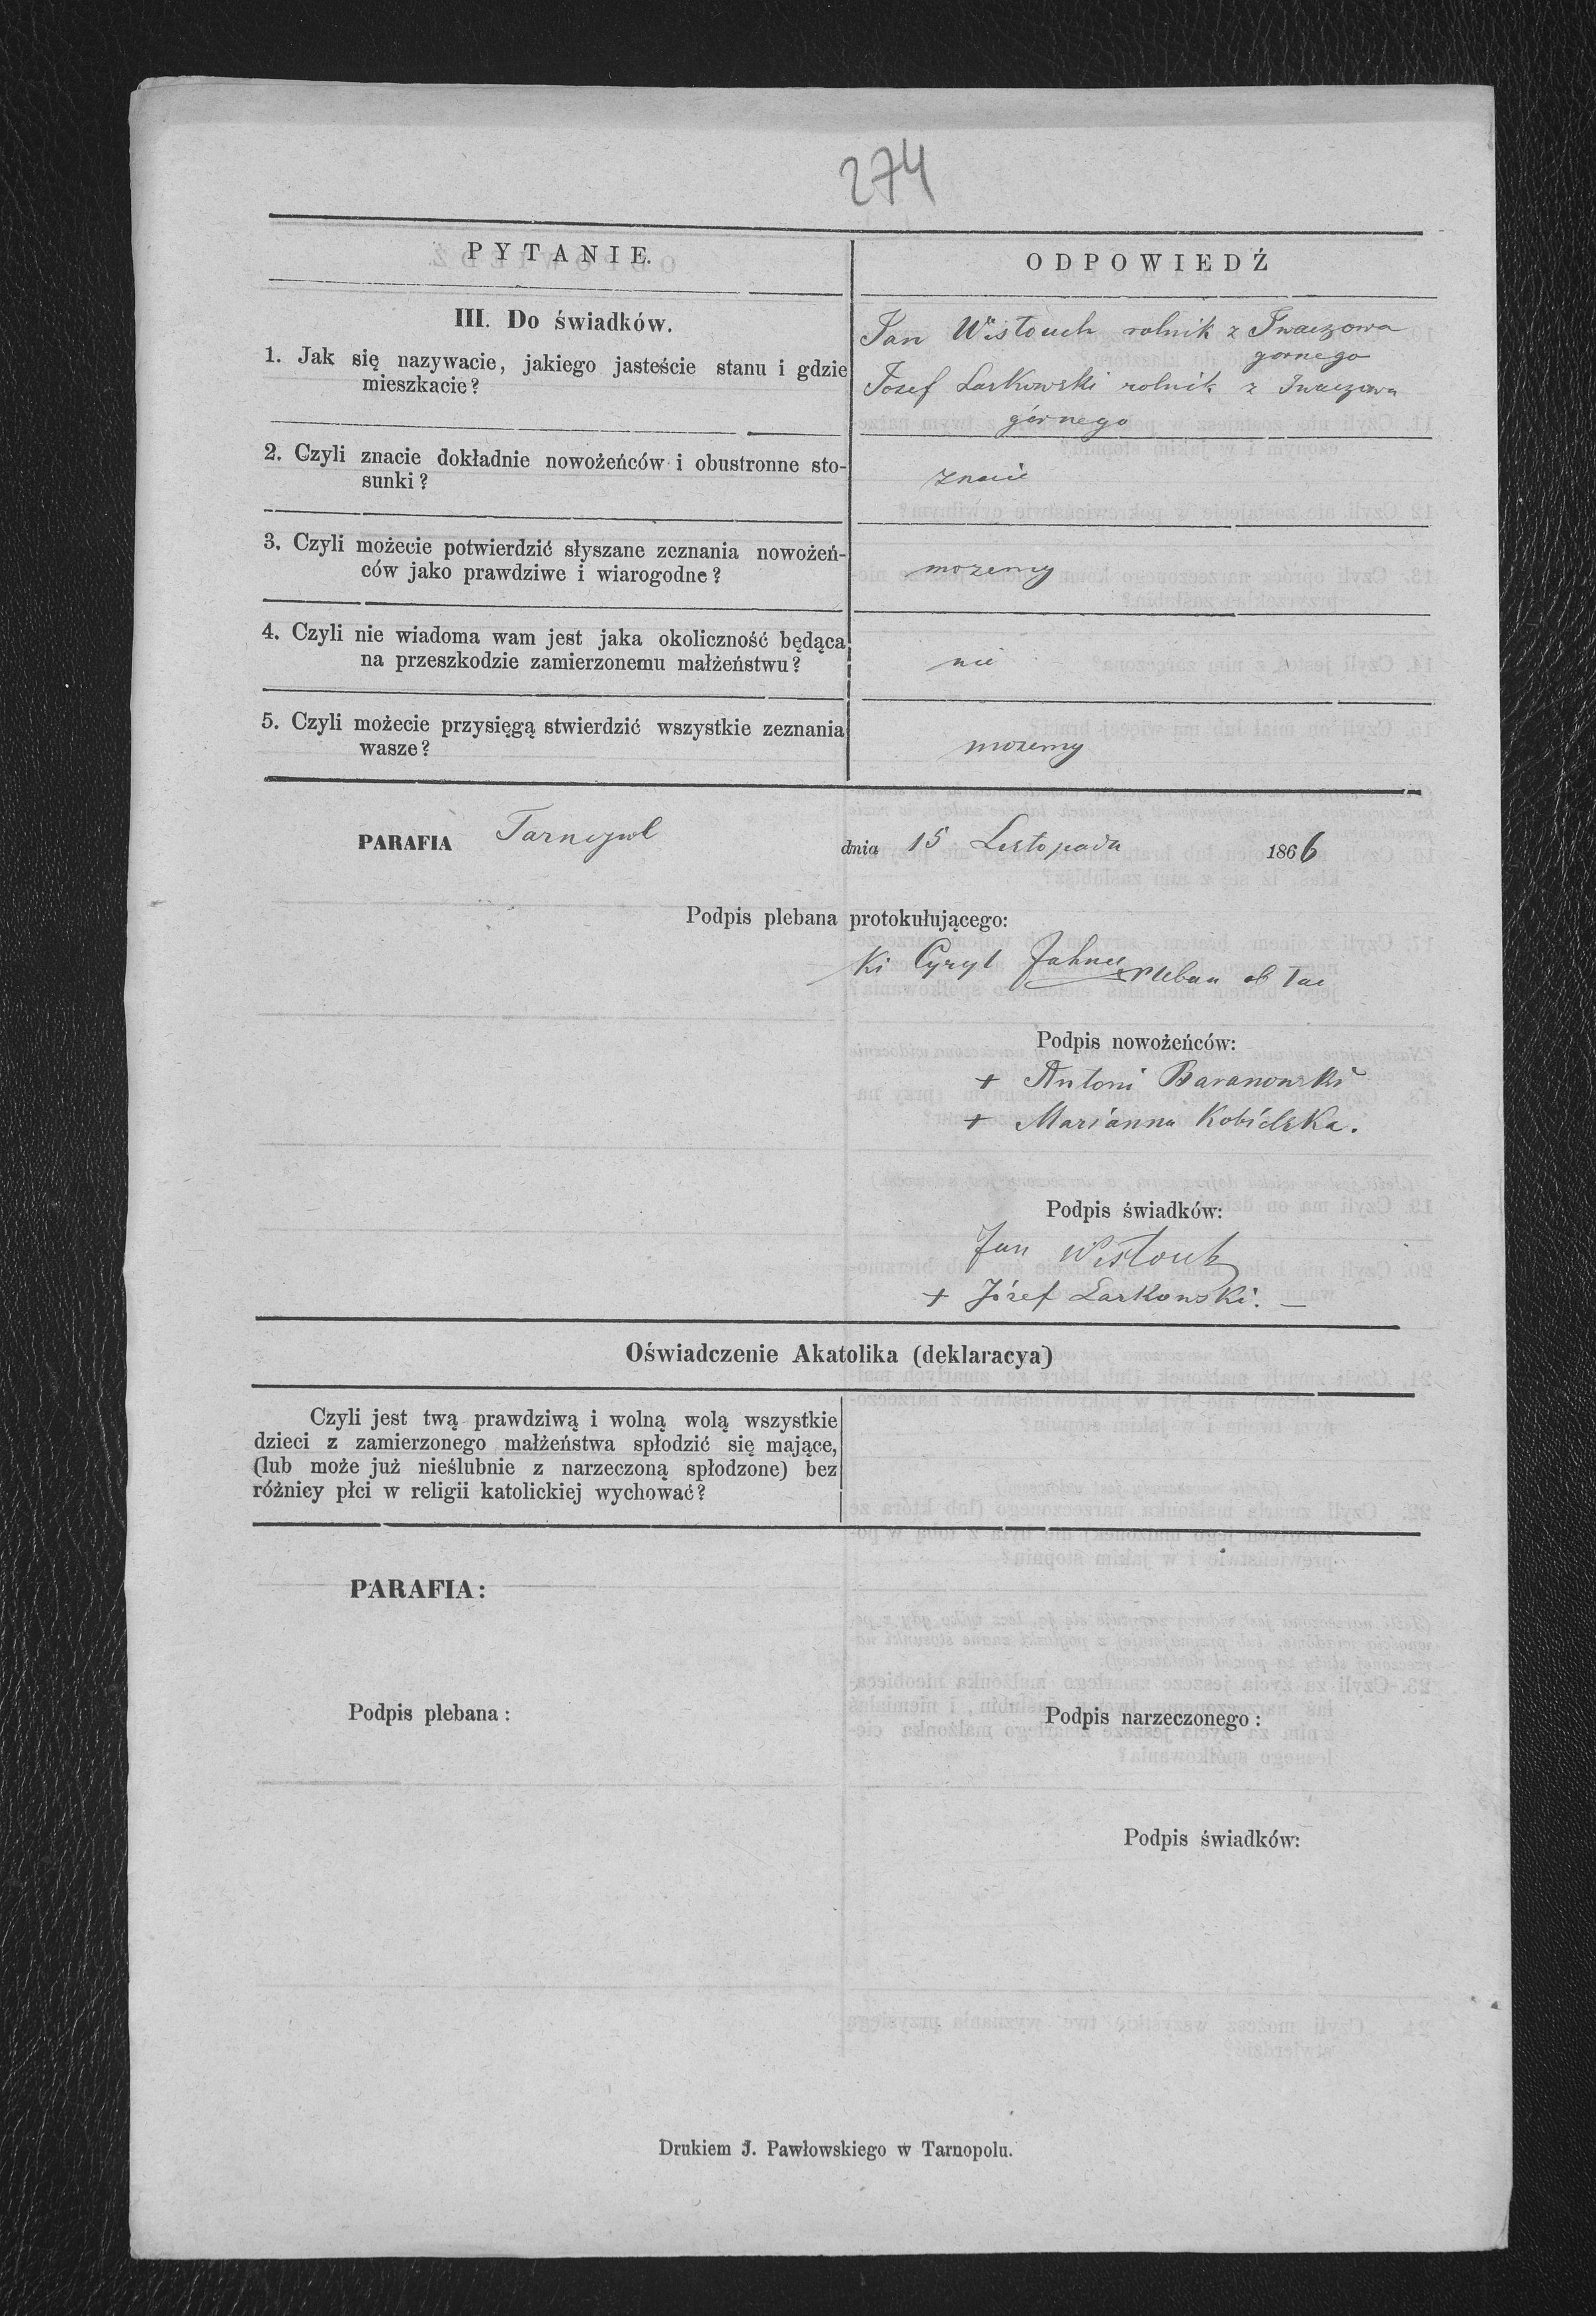 274
PYTANIE.
ODPOWIEDŹ
III. Do świadków.
1. Jak się nazywacie, jakiego jasteście stanu i gdzie
mieszkacie?
Jan Wisłouch rolnik z Iwaczowa
gornego
Josef Laskowski rolnik z Iwaczowa
górnego
2. Czyli znacie dokładnie nowożeńców i obustronne sto-
sunki?
3. Czyli możecie potwierdzić słyszane zeznania nowożeń-
ców jako prawdziwe i wiarogodne?
mozemy
4. Czyli nie wiadoma wam jest jaka okoliczność będąca
na przeszkodzie zamierzonemu małżeństwu?
nie
5. Czyli możecie przysięgą stwierdzić wszystkie zeznania
wasze?
mozemy
PARAFIA Tarnopol dnia 15 Listopada 1866
Podpis plebana protokułującego:
Cyryl
Podpis nowożeńców:
+ Antoni Baranowski
+ Marianna Kobielska.
Podpis świadków:
Jan Wisłouch
+ Józef Laskowski. —
Oświadczenie Akatolika (deklaracya)
Czyli jest twą prawdziwą i wolną wolą wszystkie
dzieci z zamierzonego małżeństwa spłodzić się mające,
(lub może już nieślubnie z narzeczoną spłodzone) bez
różnicy płci w religii katolickiej wychować?
PARAFIA:
Podpis plebana :
Podpis narzeczonego :
Podpis świadków:
Drukiem J. Pawłowskiego w Tarnopolu.